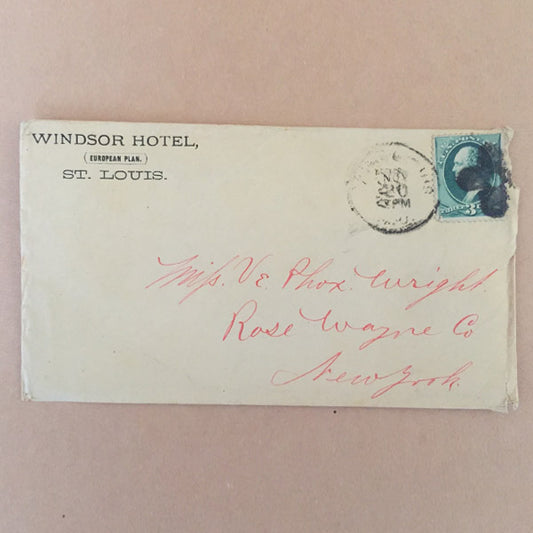 WINDSOR HOTEL,
(EUROPEAN PLAN.)
ST. LOUIS.
20
PM
THREE 3
Miss. V E. Phox. Wright.
Rose Wayne Co
New York.